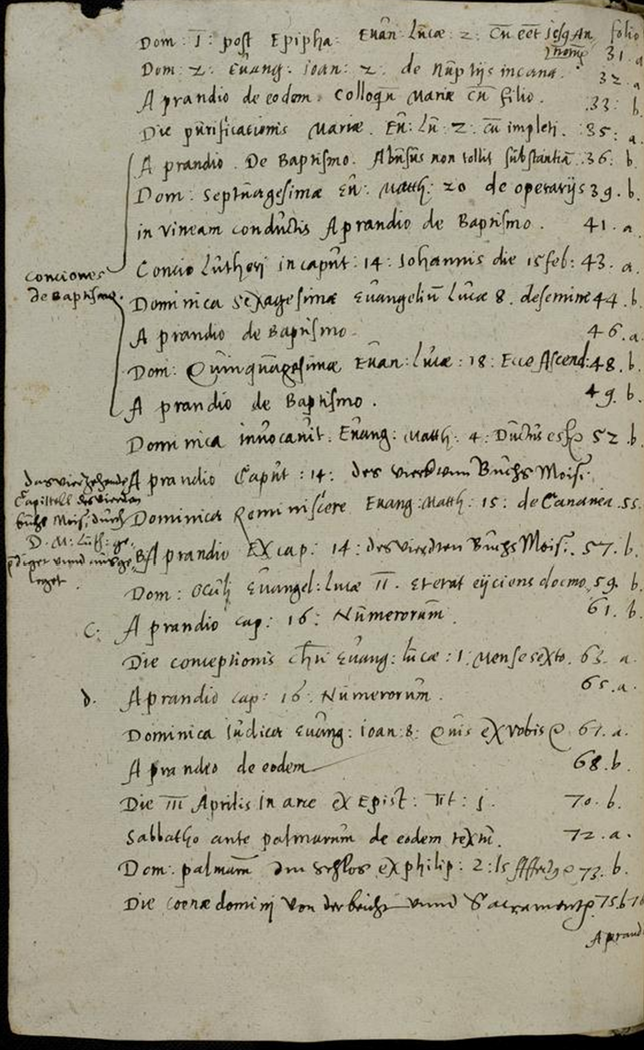 Dom: I: post Epipha: Euan: Lucæ: 2: Cū eēt Iesq An folio
norū 31. a
Dom: 2: Euang: Ioan: 2: de Nuptijs in cana. 32. a
A prandio de eodem. Colloqū Mariæ cū filio. 33. b.
Die purificationis Mariæ. Eu: Lu: 2: cū impleti. 35: a.
A prandio. De Baptismo. Abusus non tollit substantiā. 36: b.
Dom: septuagesimæ Eu: Matth: 20 de operarijs 39. b.
in vineam conductis A prandio de Baptismo. 41. a.
Conciones
de Baptismo.
Concio Lutheri in caput: 14: Iohannis die 15 feb: 43. a.
Dominica Sexagesimæ Euangeliū Lucæ 8. de semine 44. b.
A prandio de Baptismo. 46. a.
Dom: Quinquagesimæ Euan: Lucæ: 18: Ecce Ascend: 48. b.
A prandio de Baptismo. 49. b.
Dominica inuocauit: Euang: Matth: 4: Ductus est 52. b.
das vierzehende
Capittell des vierden
buchs Mosi, durch
D. M: Luth: ge-
prediget vnnd ausge-
leget.
A prandio Caput: 14: des vierdenn Buchs Mosi.
Dominica Reminiscere Euang: Matth: 15: de Cananea. 55.
B. A prandio Ex cap: 14: des vierdten Buchs Mosi. 57. b.
Dom: Oculj Euangel: Lucæ II. Et erat eijciens dæmo. 59. b.
C. A prandio cap: 16: Numerorum. 61. b.
Die conceptionis Chri Euang: Lucæ: 1: Mense sexto. 63. a.
d. A prandio cap: 16: Numerorum. 65. a.
Dominica Iudica Euang: Ioan: 8: Quis ex vobis 67. a.
A prandio de eodem 68. b.
Die III Aprilis in arce ex Epist: Tit: j. 70. b.
Sabbatho ante palmarum de eodem textu. 72. a.
Dom: palmarū Im schlos ex philip: 2: 73. b.
Die coenæ dominj Von der beicht vnnd Sacrament 75. b
A prand